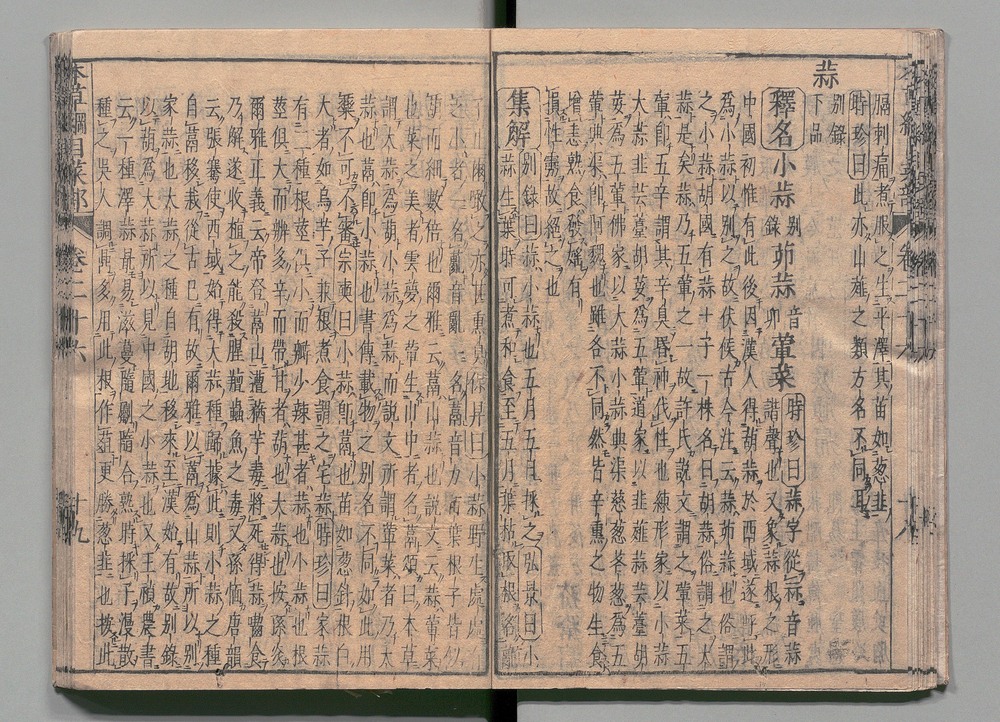 膈刺痛煮服之生平澤其苗如葱韭
時珍曰此亦山薤之類方名不同耳
蒜
別錄
下品
釋名小蒜別錄茆蒜音卯葷菜時珍曰蒜字從祘音蒜
諧聲也又象蒜根之形
中國初惟有此後因漢人得葫蒜於西域遂呼此
為小蒜以別之故伏候古今注云蒜茆蒜也俗謂
之小蒜胡國有蒜十子一株名曰胡蒜俗謂之大
蒜是矣蒜乃五葷之一故許氏說文謂之葷菜五
葷即五辛謂其辛臭昏神伐性也練形家以小蒜
大蒜韭芸薹胡荽為五葷道家以韭薤蒜芸薹胡
荽為五葷佛家以大蒜小蒜興渠慈葱茖葱為五
葷興渠即阿魏也雖各不同然皆辛熏之物生食
增恚熟食發婬有
損性靈故絶之也
集解別錄曰蒜小蒜也五月五日採之弘景曰小
蒜生葉時可煮和食至五月葉枯取根名
子正爾噉之亦甚熏臭保昇曰小蒜野生處處有
之小者一名䔉音亂一名蒚音力苗葉根子皆似
葫而細數倍也爾雅云蒚山蒜也說文云蒜葷菜
也菜之美者雲夢之葷生山中者名蒚頌曰本草
謂大蒜為葫小蒜為蒜而說文所謂葷菜者乃大
蒜也蒚即小蒜也書傳載物之別名不同如此用
藥不可不審宗奭曰小蒜即蒚也苗如葱針根白
大者如烏芋子兼根煮食謂之宅蒜時珍曰家蒜
有二種根莖俱小而瓣少辣甚者蒜也小蒜也根
莖俱大而瓣多辛而帶甘者葫也大蒜也按孫炎
爾雅正義云帝登蒚山遭蕕芋毒將死得蒜嚙食
乃解遂收植之能殺腥羶蟲魚之毒又孫愐唐韻
云張騫使西域始得大蒜種歸據此則小蒜之種
自蒚移栽從古已有故爾雅以蒚為山蒜所以別
家蒜也大蒜之種自胡地移來至漢始有故別錄
以葫為大蒜所以見中國之小蒜也又王禎農書
云一種澤蒜最易滋蔓隨劚隨合熟時採子漫散
種之吳人調鼎多用此根作葅更勝葱韭也按此
本草綱目菜部 卷二十六 十九